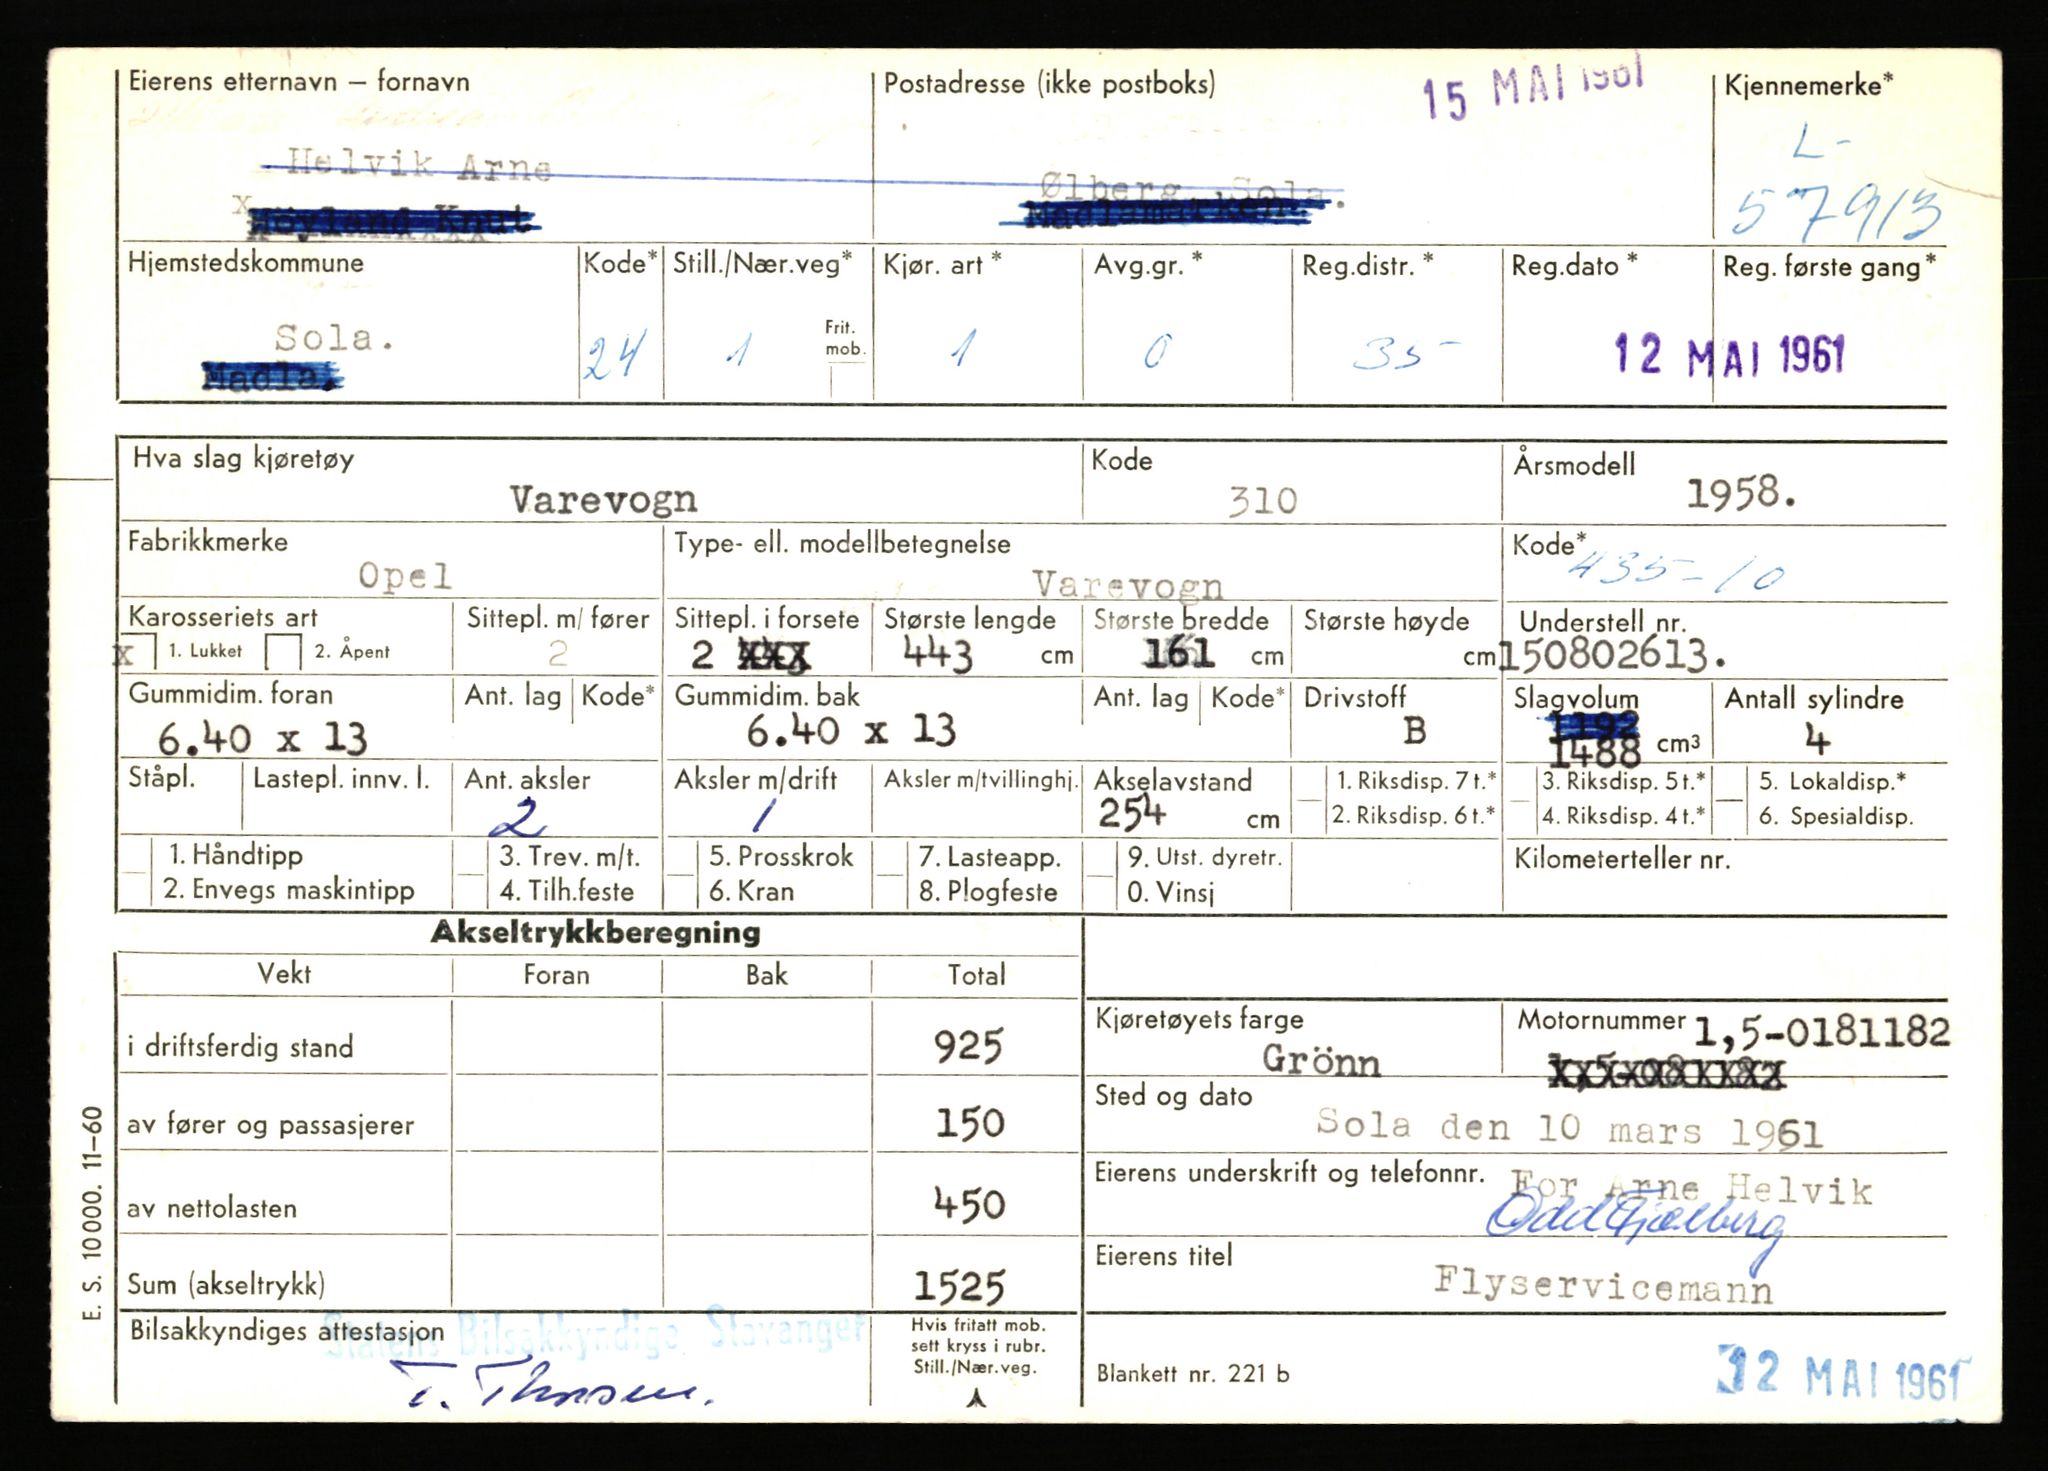 Eierens etternavn – fornavn
Postadresse (ikke postboks)
15 MAI 1961
Kjennemerke*
L-
57913
Helvik Arne
Ølberg, Sola.
x Høyland Knut
Madlamarken
Hjemstedskommune
Kode*
Still./Nær.veg*
Kjør. art *
Avg.gr. *
Reg.distr. *
Reg.dato *
Reg. første gang*
Sola.
Madla.
24
1
Frit. mob.
1
0
35
12 MAI 1961
Hva slag kjøretøy
Varevogn
Kode
310
Årsmodell
1958.
Fabrikkmerke
Opel
Type- ell. modellbetegnelse
Varevogn
Kode*
435-10
Karosseriets art
x 1. Lukket 2. Åpent
Sittepl. m/ fører
2
Sittepl. i forsete
2
Største lengde
443 cm
Største bredde
161 cm
Største høyde
cm
Understell nr.
150802613.
Gummidim. foran
6.40 x 13
Ant. lag
Kode*
Gummidim. bak
6.40 x 13
Ant. lag
Kode*
Drivstoff
B
Slagvolum
1192
1488 cm³
Antall sylindre
4
Ståpl.
Lastepl. innv. l.
Ant. aksler
2
Aksler m/drift
1
Aksler m/tvillinghj.
Akselavstand
254 cm
1. Riksdisp. 7 t.*
2. Riksdisp. 6 t.*
3. Riksdisp. 5 t.*
4. Riksdisp. 4 t.*
5. Lokaldisp.*
6. Spesialdisp.
1. Håndtipp
2. Envegs maskintipp
3. Trev. m/t.
4. Tilh.feste
5. Prosskrok
6. Kran
7. Lasteapp.
8. Plogfeste
9. Utst. dyretr.
0. Vinsj
Kilometerteller nr.
Akseltrykkberegning
Vekt Foran Bak Total
i driftsferdig stand 925
av fører og passasjerer 150
av nettolasten 450
Sum (akseltrykk) 1525
Kjøretøyets farge
Grönn
Motornummer
1,5-0181182
Sted og dato
Sola den 10 mars 1961
Eierens underskrift og telefonnr.
For Arne Helvik
Odd Fjælberg
Eierens titel
Flyservicemann
Bilsakkyndiges attestasjon
Statens Bilsakkyndige Stavanger
Hvis fritatt mob.
sett kryss i rubr.
Still./Nær.veg.
Blankett nr. 221 b
12 MAI 1961
E. S. 10000. 11–60